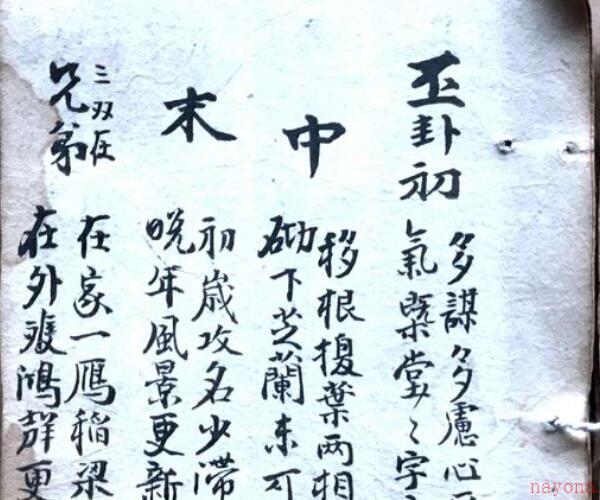 玉卦初
多謀多慮心
氣槩堂々字
中
移根換葉兩相
砌下芝蘭未可
末
初歲攻名少滯
晚年風景更新
兄弟
三双在
在家一鴈稻梁
在外飛鴻群更
nayona